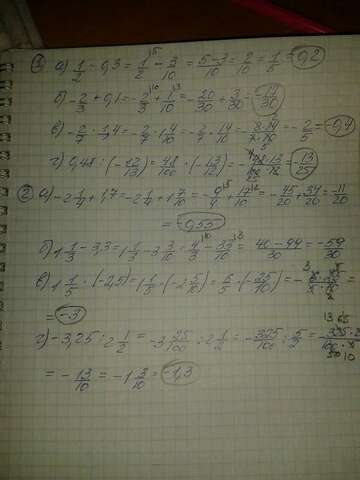 ① а) 1/2 - 0,3 = 1/2 - 3/10 = (5-3)/10 = 2/10 = 1/5 = 0,2
б) -2/3 + 0,1 = -2/3 + 1/10 = -20/30 + 3/30 =
в) -2/7 · 1,4 = -2/7 · 1 4/10 = -2/7 · 14/10 = = -2/5 =
г) 0,48 : (-12/13) = 48/100 · (-13/12) = = -13/25
② а) -2 1/4 + 1,7 = -2 1/4 + 1 7/10 = -9/4 + 17/10 = -45/20 + 34/20 = -11/20
= -0,55
б) 1 1/3 - 3,3 = 1 1/3 - 3 3/10 = 4/3 - 33/10 = = -59/30
в) 1 1/5 · (-2,5) = 1 1/5 · (-2 5/10) = 6/5 · (-25/10) = =
= -3
г) -3,25 : 2 1/2 = -3 25/100 : 2 1/2 = -325/100 : 5/2 =
= -13/10 = -1 3/10 = -1,3